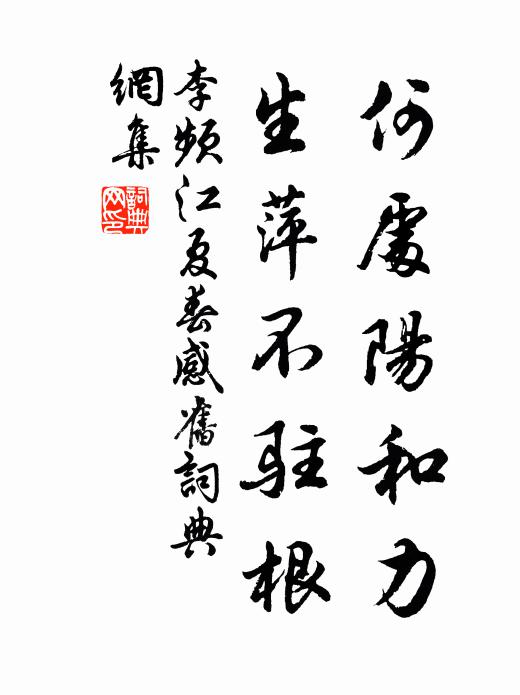 何處陽和力
生萍不駐根
李頻江夏春感舊詞典
網集
詞典網印